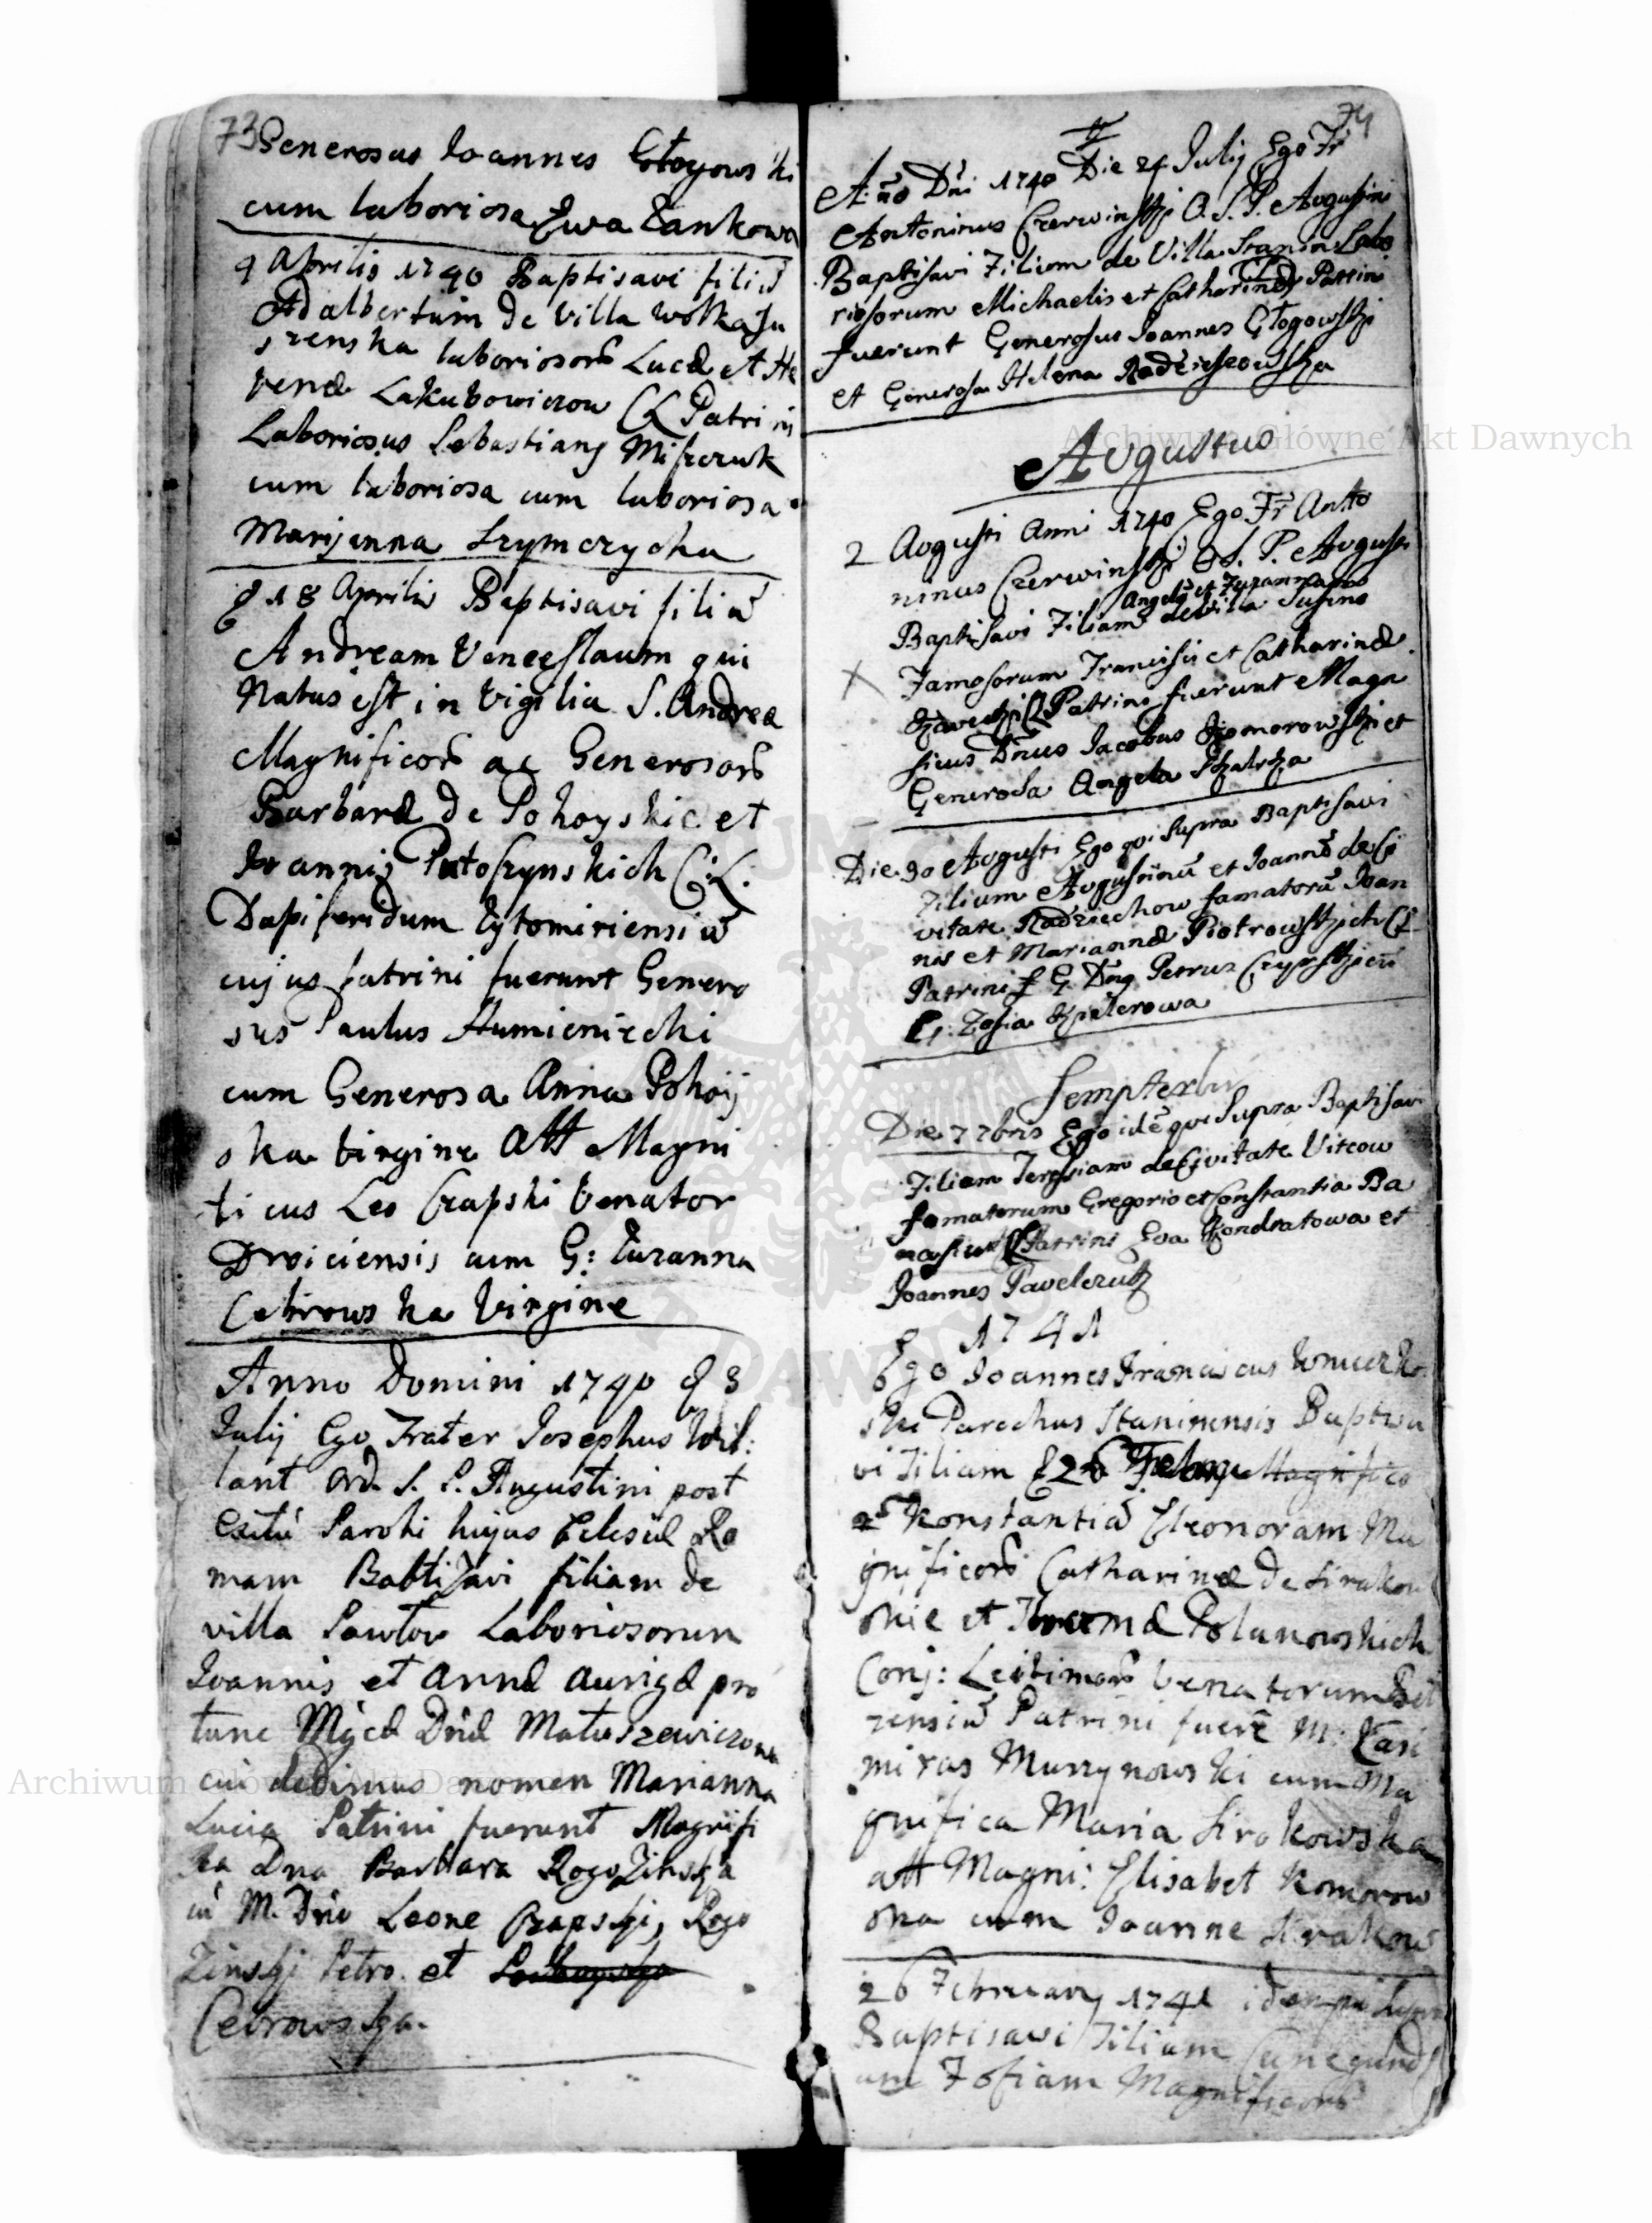 73 Generosus Ioannes Głogowski
cum laboriosa Ewa Bankowa
9 Aprilis 1740 Baptisavi filiū
Adalbertum de Villa Wolka Su
szenska laboriosorō Lucæ et He
lenæ Lakubowiczow CL Patrini
Laboriosus Sebastiang Miszczuk
cum laboriosa cum laboriosa
Marijanna Szymczycha
d 18 Aprilis Baptisavi filiū
Andream Venceslaum qui
Natus est in Vigilia S. Andreæ
Magnificorō ac Generosorō
Barbaræ de Pohoyskie et
Ioannis Putoszynskich C: L.
Dapiferidum Zytomiriensiū
cujus patrini fuerunt Genero
sus Paulus Humieniecki
cum Generosa Anna Pohoij
ska Virgine Att Magni
ficus Leo Czapski Venator
Droiciensis cum G: Zuzanna
Cetrowska Virgine
Anno Domini 1740 d 3
Iulij Ego Frater Josephus Wil:
lant Ord. S. P. Augustini post
exitū Parohi hujus Eclesiæ Ro
mam Babtizavi filiam de
villa Pawłow Laboriosorum
Ioannis et Annæ Aurigæ pro
tunc Mgcæ Dnæ Matuszewiczowa
cui dedimus nomen Marianna
Lucia Patrini fuerunt Magnifi
ka Dna Barbara Rogozinska
cū M. Dno Leone Czapski, Rogo
Zinski Petro et
Cetrowska.
74
A:no Dni 1740 Die 24 Julij Ego Fr
Antoninus Czerwinski O. S. P. Augustini
Baptisavi Filiom de Villa Stanin Labo
riosorum Michaelis et Catharinæ Patrini
fuerunt Generosus Ioannes Głogowski
et Generosa Helena Radzieiowska
Augustus
2 Augusti Anni 1740 Ego Fr Anto
ninus Czerwinski O S. P. Augusti
Angelā et Zuzannam
Baptisavi Filiam de Villa Suszno
X Famosorum Francisci et Catharinæ
Patrini fuerunt Magni
ficus Dnus Iacobus Komorowski et
Generosa Angela Skalska
Die 30 Augusti Ego qui supra Baptisavi
Filium Augustinū et Ioannē de Ci
vitate Radziechow famatorū Ioan
nis et Mariannæ Piotrowskich CL
Patrini f G Dng Petrus Czyrski cū
G: Zofia
Sempterbris
Die 7 7bris Ego idē qui Supra Baptisavi
Filiam Teresiam de Civitate Vitcow
famatorum Gregorio et Constantia Ba
nasiuk Patrini Eva Kondratowa et
Joannes Pavelczuk
1741
Ego Joannes Franciscus
ski Parochus Staninensis Baptisa
vi Filiam d 26 Febru Magnifico
Konstantiā Eleonoram Ma
gnificorō Catharinæ de Sirakow
skie et Polanowskich
Conj: Leitimorō Venatorum Bel
zensiū Patrini fuere M: Casi
mirus Murzynowski cum Ma
gnifica Maria Sirakowska
att Magni: Elisabet Komorow
ska cum Ioanne Sirakow
26 Februarij 1741 idem qui supra
Baptisavi Filiam Cunegund
am Zofiam Magnificorō
Archiwum Główne Akt Dawnych